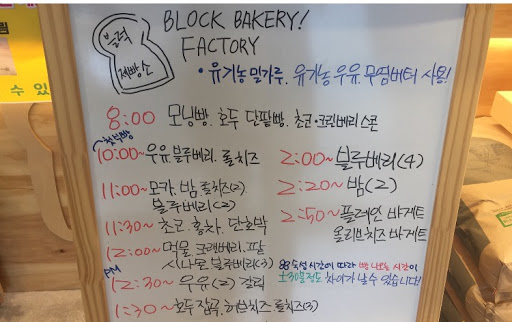 블럭
제빵소
BLOCK BAKERY!
FACTORY
• 유기농 밀가루. 유기농 우유. 무염버터 사용!
수 있
8:00 모닝빵. 호두 단팥빵. 초코·크린베리 스콘
10:00~ 우유. 블루베리. 롤치즈
11:00~ 모카. 밤. 롤치즈(2)
블루베리(2)
11:30~ 초코. 홍차. 단호박
12:00~ 먹물. 크랜베리. 팥
시나몬. 블루베리(3)
PM
12:30~ 우유(2) 갈릭
1:30~ 호두잡곡. 허브치즈 롤치즈(3)
2:00~ 블루베리(4)
2:20~ 밤(2)
2:50~ 플레인 바게트
올리브치즈 바게트
숙성시간에 따라 빵 나오는 시간이
±30분정도 차이가 날 수 있습니다!